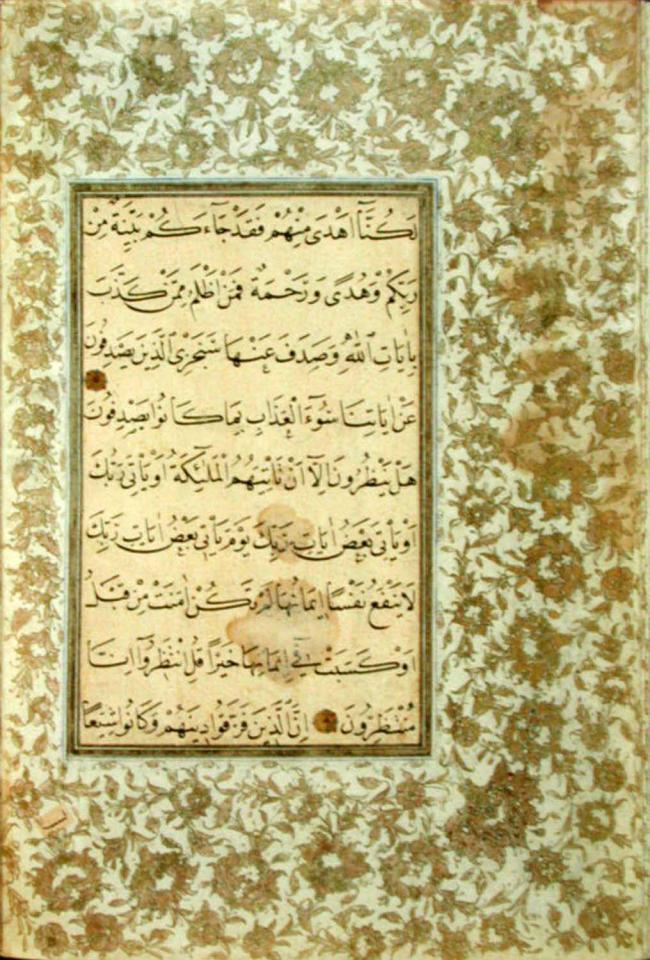 لَكُنَّآ اَهْدٰى مِنْهُمْ فَقَدْ جَآءَكُمْ بَيِّنَةٌ مِنْ
رَبِّكُمْ وَهُدًى وَرَحْمَةٌ فَمَنْ اَظْلَمُ مِمَّنْ كَذَّبَ
بِاٰيَاتِ اللّٰهِ وَصَدَفَ عَنْهَا سَنَجْزِى الَّذِينَ يَصْدِفُونَ
عَنْ اٰيَاتِنَا سُوٓءَ الْعَذَابِ بِمَا كَانُوا يَصْدِفُونَ
هَلْ يَنْظُرُونَ اِلَّآ اَنْ تَاْتِيَهُمُ الْمَلٰٓئِكَةُ اَوْ يَاْتِىَ رَبُّكَ
اَوْ يَاْتِىَ بَعْضُ اٰيَاتِ رَبِّكَ يَوْمَ يَاْتِى بَعْضُ اٰيَاتِ رَبِّكَ
لَا يَنْفَعُ نَفْسًا اِيمَانُهَا لَمْ تَكُنْ اٰمَنَتْ مِنْ قَبْلُ
اَوْ كَسَبَتْ فِىٓ اِيمَانِهَا خَيْرًا قُلِ انْتَظِرُوٓا اِنَّا
مُنْتَظِرُونَ اِنَّ الَّذِينَ فَرَّقُوا دِينَهُمْ وَكَانُوا شِيَعًا